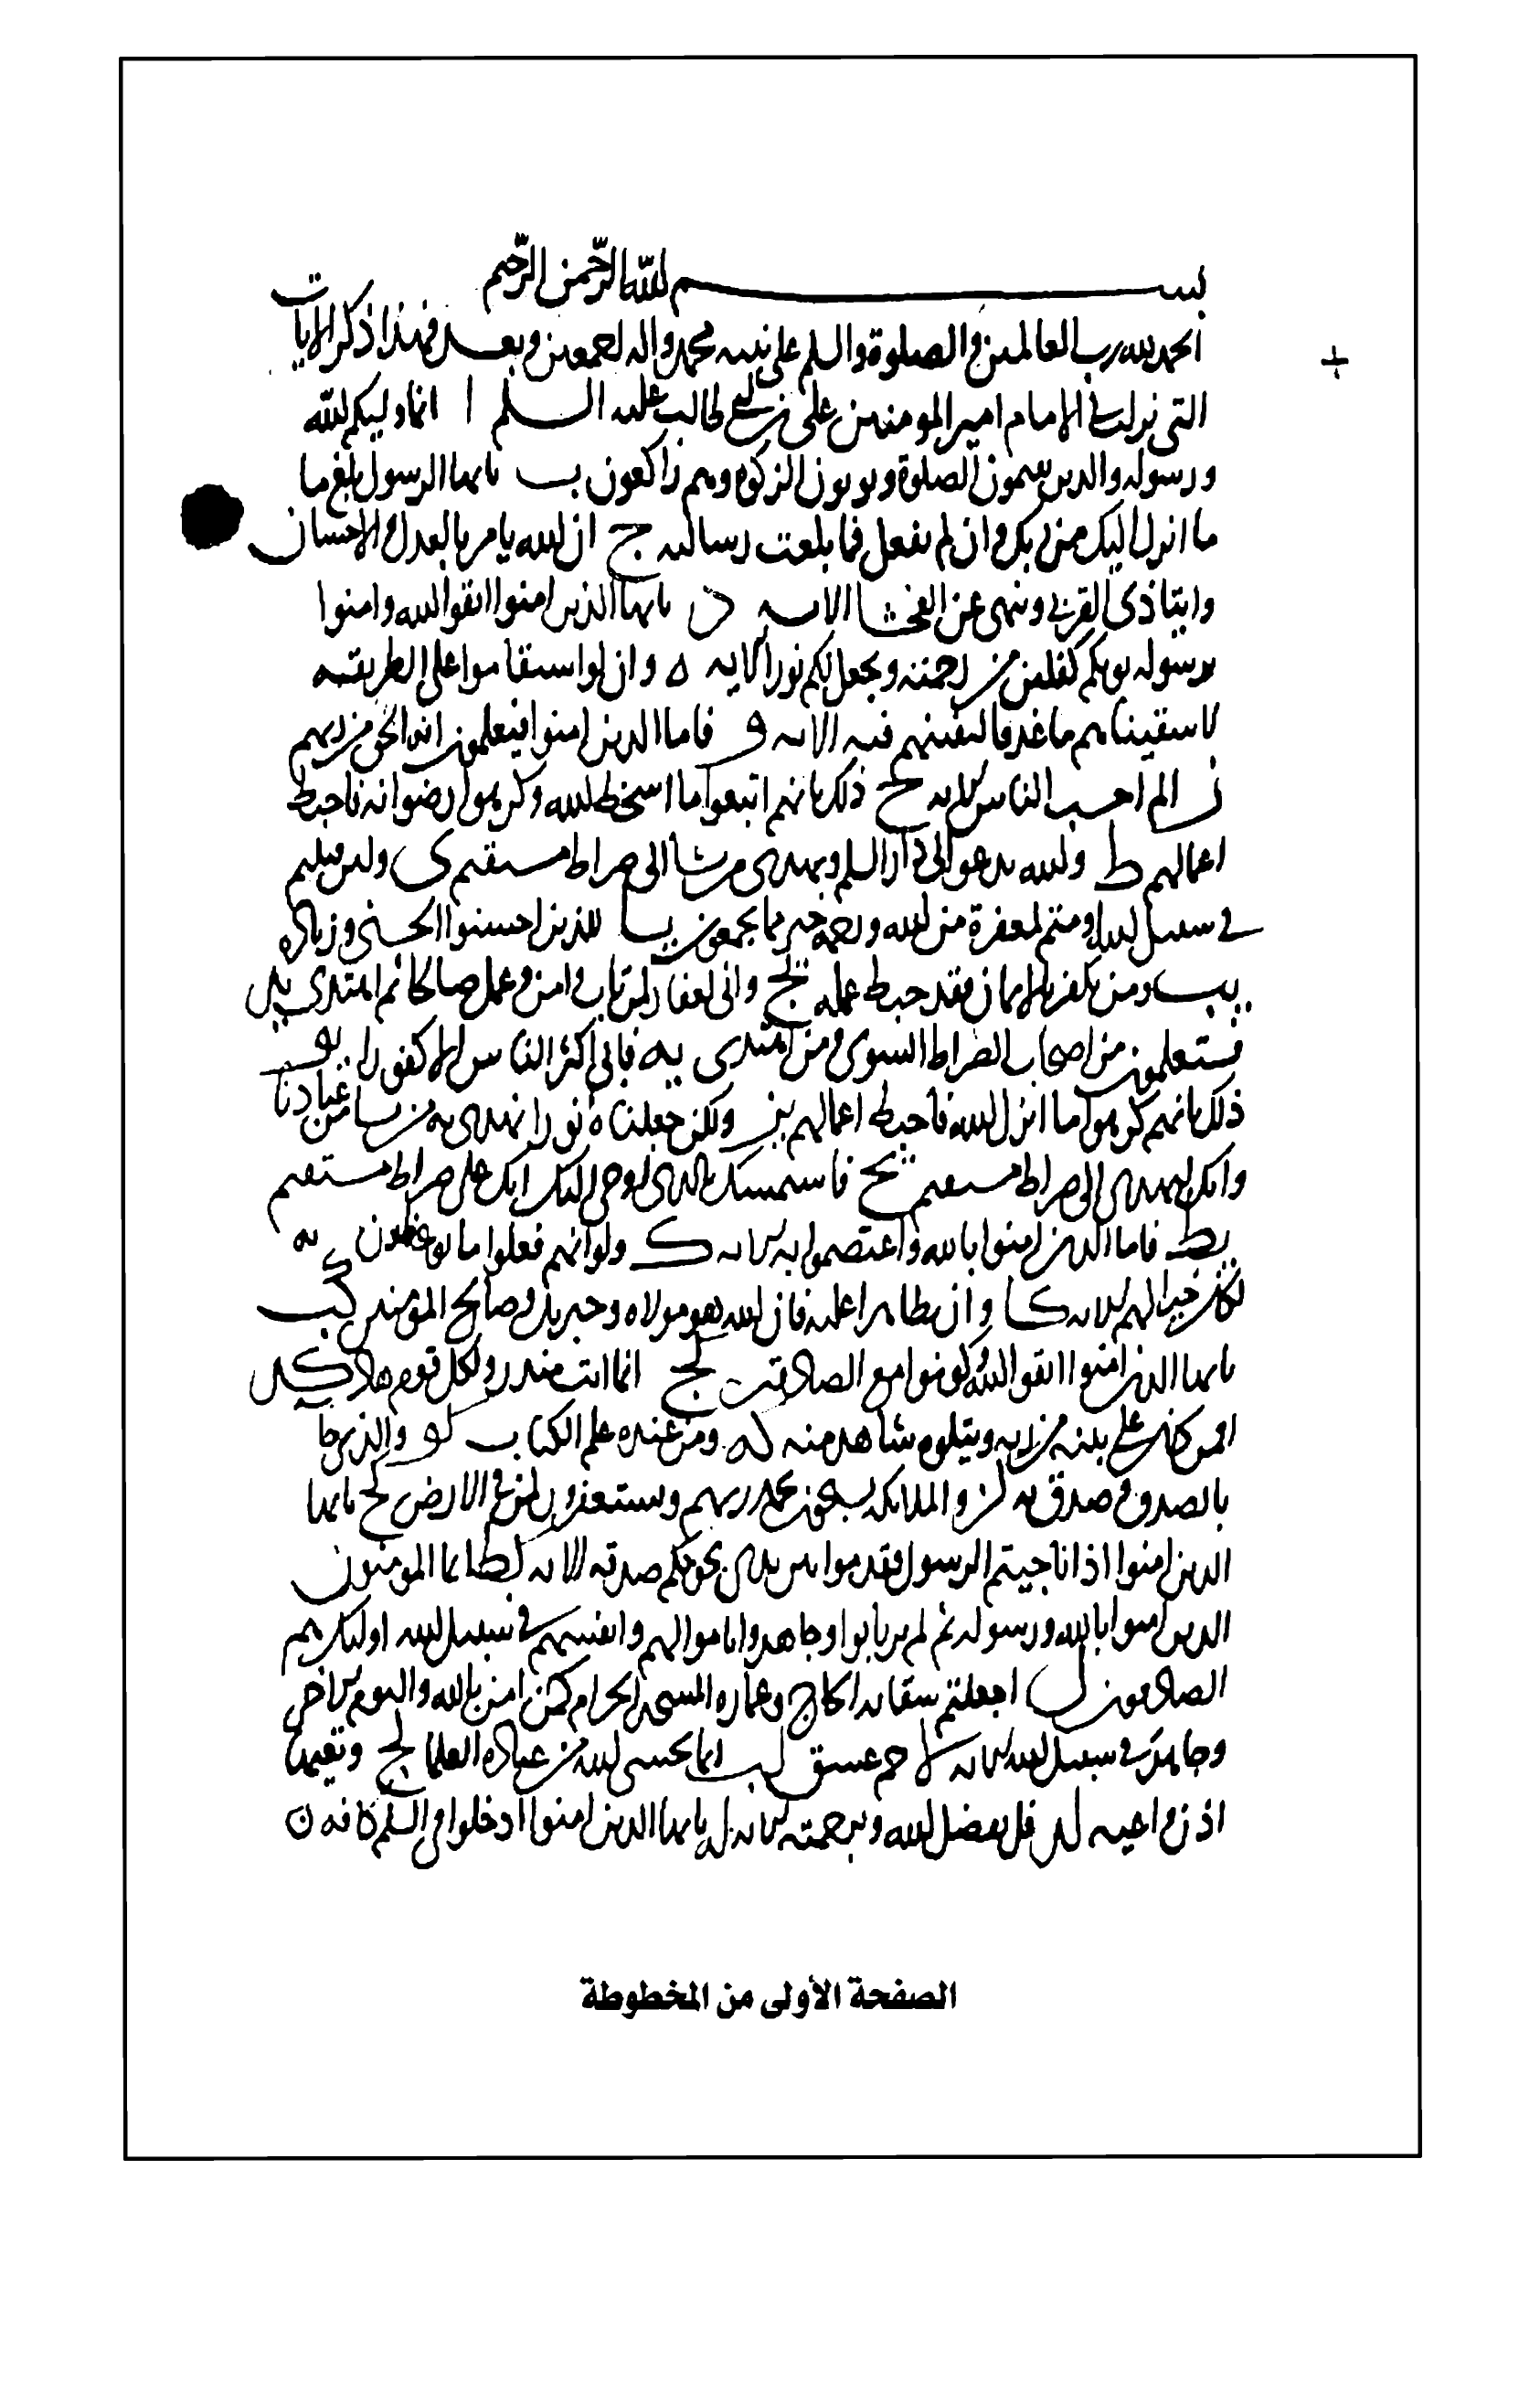 بسم الله الرحمن الرحيم
الحمد لله رب العالمين والصلوة والسلم على نبيه محمد واله اجمعين وبعد فهذا ذكر الايات
التي نزلت في الامام امير المومنين علي بن ابي طالب عليه السلم ا انما وليكم الله
ورسوله والذين يقيمون الصلوة ويوتون الزكوة وهم راكعون ب يايها الرسول بلغ ما
ما انزل اليك من ربك وان لم تفعل فما بلغت رسالته ج ان الله يامر بالعدل والاحسان
وايتا ذي القربى وينهى عن الفحشا الايه د يايها الذين امنوا اتقوا الله وامنوا
برسوله يوتكم كفلين من رحمته ويجعل لكم نورا الايه ه وان لو استقاموا على الطريقه
لاسقيناهم ما غدقا لنفتنهم فيه الايه و فاما الذين امنوا فيعلمون انه الحق من ربهم
ز الم احسب الناس الايه ح ذلك بانهم اتبعوا ما اسخط الله وكرهوا رضوانه فاحبط
اعمالهم ط والله يدعو الى دار السلم ويهدي من يشا الى صراط مستقيم ي ولئن قتلتم
في سبيل الله او متم لمغفرة من الله ورحمة خير مما يجمعون يا للذين احسنوا الحسنى وزياده
يب ومن يكفر بالايمان فقد حبط عمله يج واني لغفار لمن تاب وامن وعمل صالحا ثم اهتدى يد
فستعلمون من اصحاب الصراط السوي ومن اهتدى يه فابى اكثر الناس الا كفورا يو
ذلك بانهم كرهوا ما انزل الله فاحبط اعمالهم يز ولكن جعلناه نورا نهدي به من نشا من عبادنا
وانك لتهدي الى صراط مستقيم يح فاستمسك بالذي اوحي اليك انك على صراط مستقيم
يط فاما الذين امنوا بالله واعتصموا به الايه ك ولو انهم فعلوا ما يوعظون به
لكان خيرا لهم الايه كا وان تظاهرا عليه فان الله هو مولاه وجبريل وصالح المؤمنين كب
يايها الذين امنوا اتقوا الله وكونوا مع الصادقين كج انما انت منذر ولكل قوم هاد كد
افمن كان على بينه من ربه ويتلوه شاهد منه كه ومن عنده علم الكتاب كو والذي جا
بالصدق وصدق به كز والملايكه يسبحون بحمد ربهم ويستغفرون لمن في الارض كح يايها
الذين امنوا اذا ناجيتم الرسول فقدموا بين يدي نجويكم صدقه الايه كط انما المومنون
الذين امنوا بالله ورسوله ثم لم يرتابوا وجاهدوا باموالهم وانفسهم في سبيل الله اوليك هم
الصادقون ل اجعلتم سقايه الحاج وعماره المسجد الحرام كمن امن بالله واليوم الاخر
وجاهد في سبيل الله الايه لا حم عسق لب انما يخشى الله من عباده العلما لج وتعيها
اذن واعيه لد قل بفضل الله وبرحمته الايه له يايها الذين امنوا ادخلوا في السلم كافه ن
الصفحة الأولى من المخطوطة